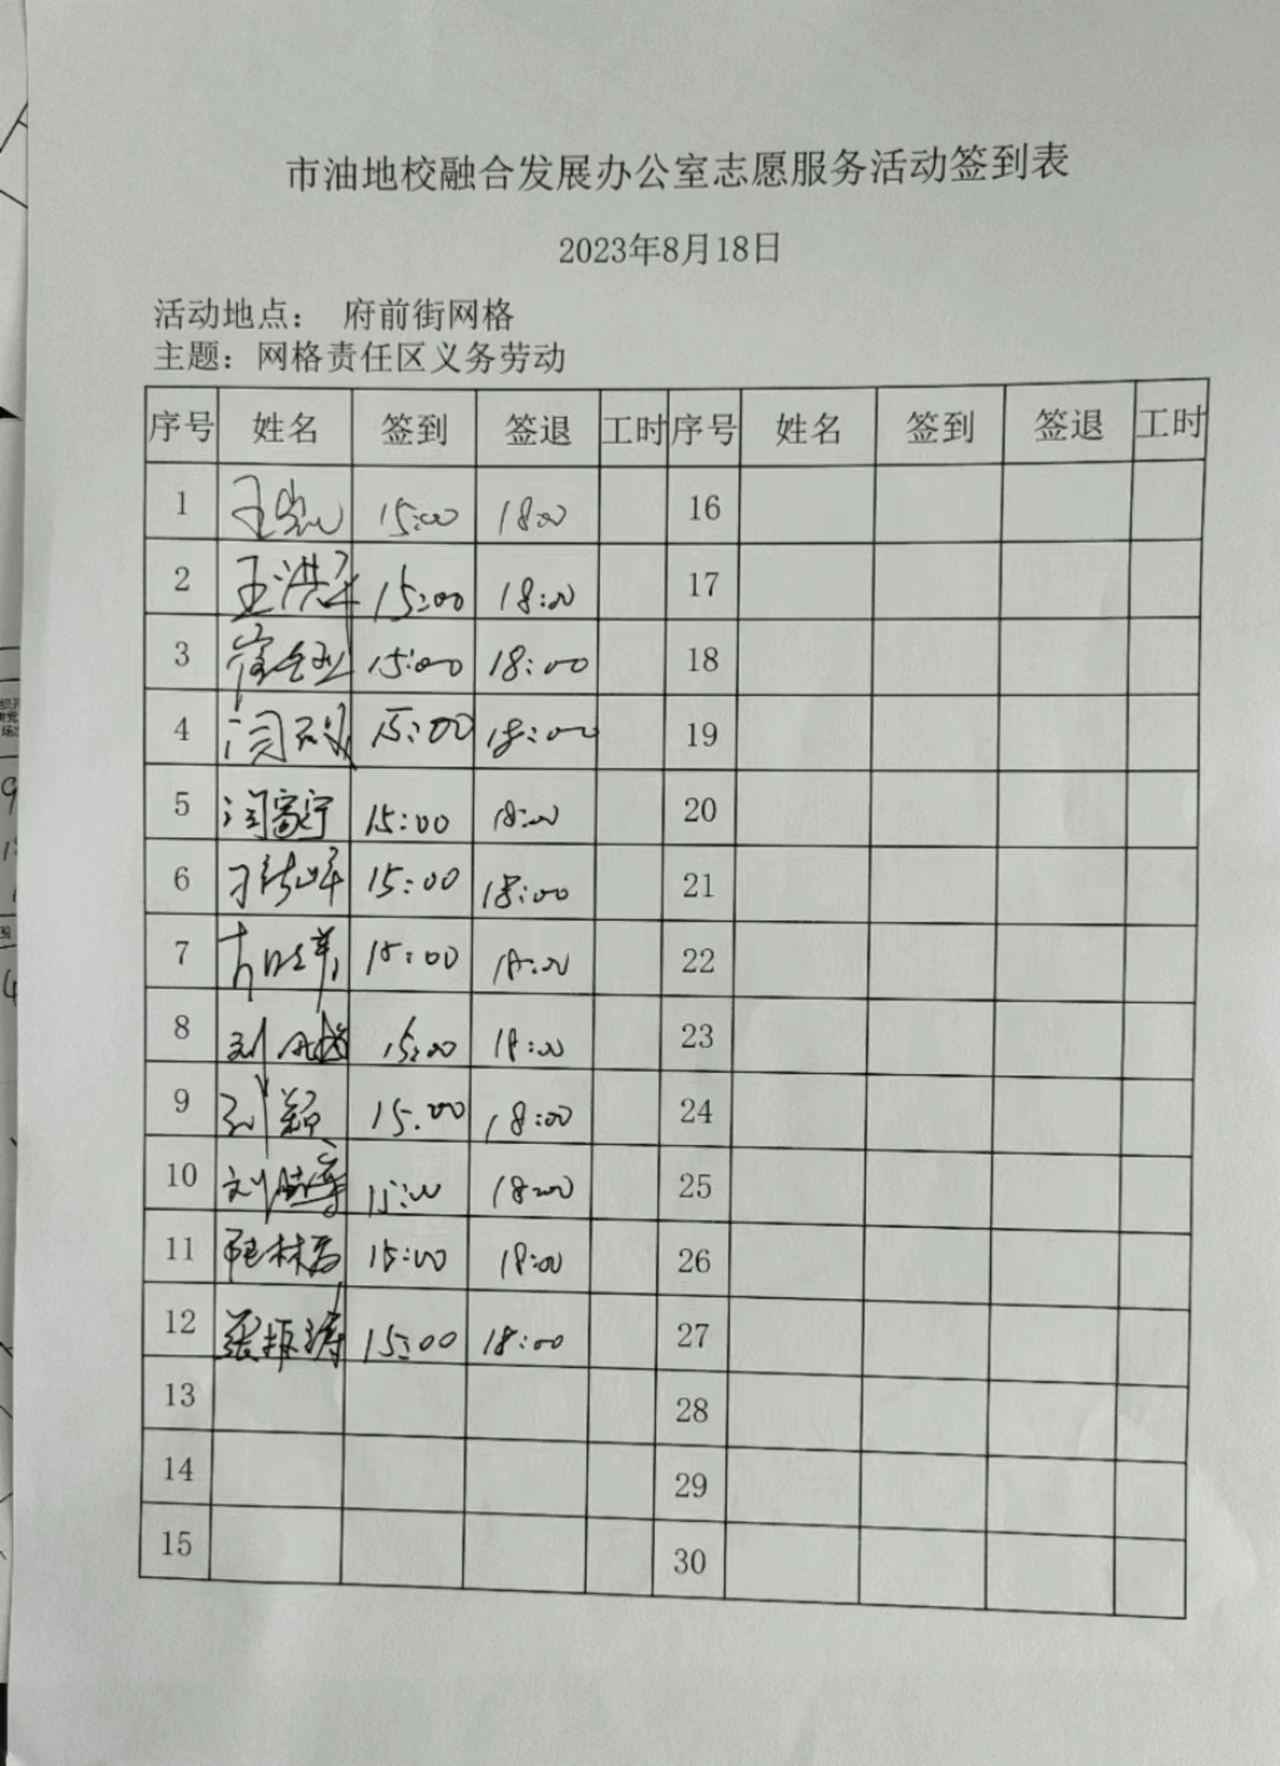 市油地校融合发展办公室志愿服务活动签到表
2023年8月18日
活动地点： 府前街网格
主题：网格责任区义务劳动
序号 姓名 签到 签退 工时 序号 姓名 签到 签退 工时
1 15:00 18:00 16
2 王洪 15:00 18:00 17
3 15:00 18:00 18
4 闫 15:00 18:00 19
5 闫家宁 15:00 18:00 20
6 15:00 18:00 21
7 15:00 18:00 22
8 刘 15:00 18:00 23
9 刘颖 15:00 18:00 24
10 刘 15:00 18:00 25
11 15:00 18:00 26
12 张振涛 15:00 18:00 27
13 28
14 29
15 30